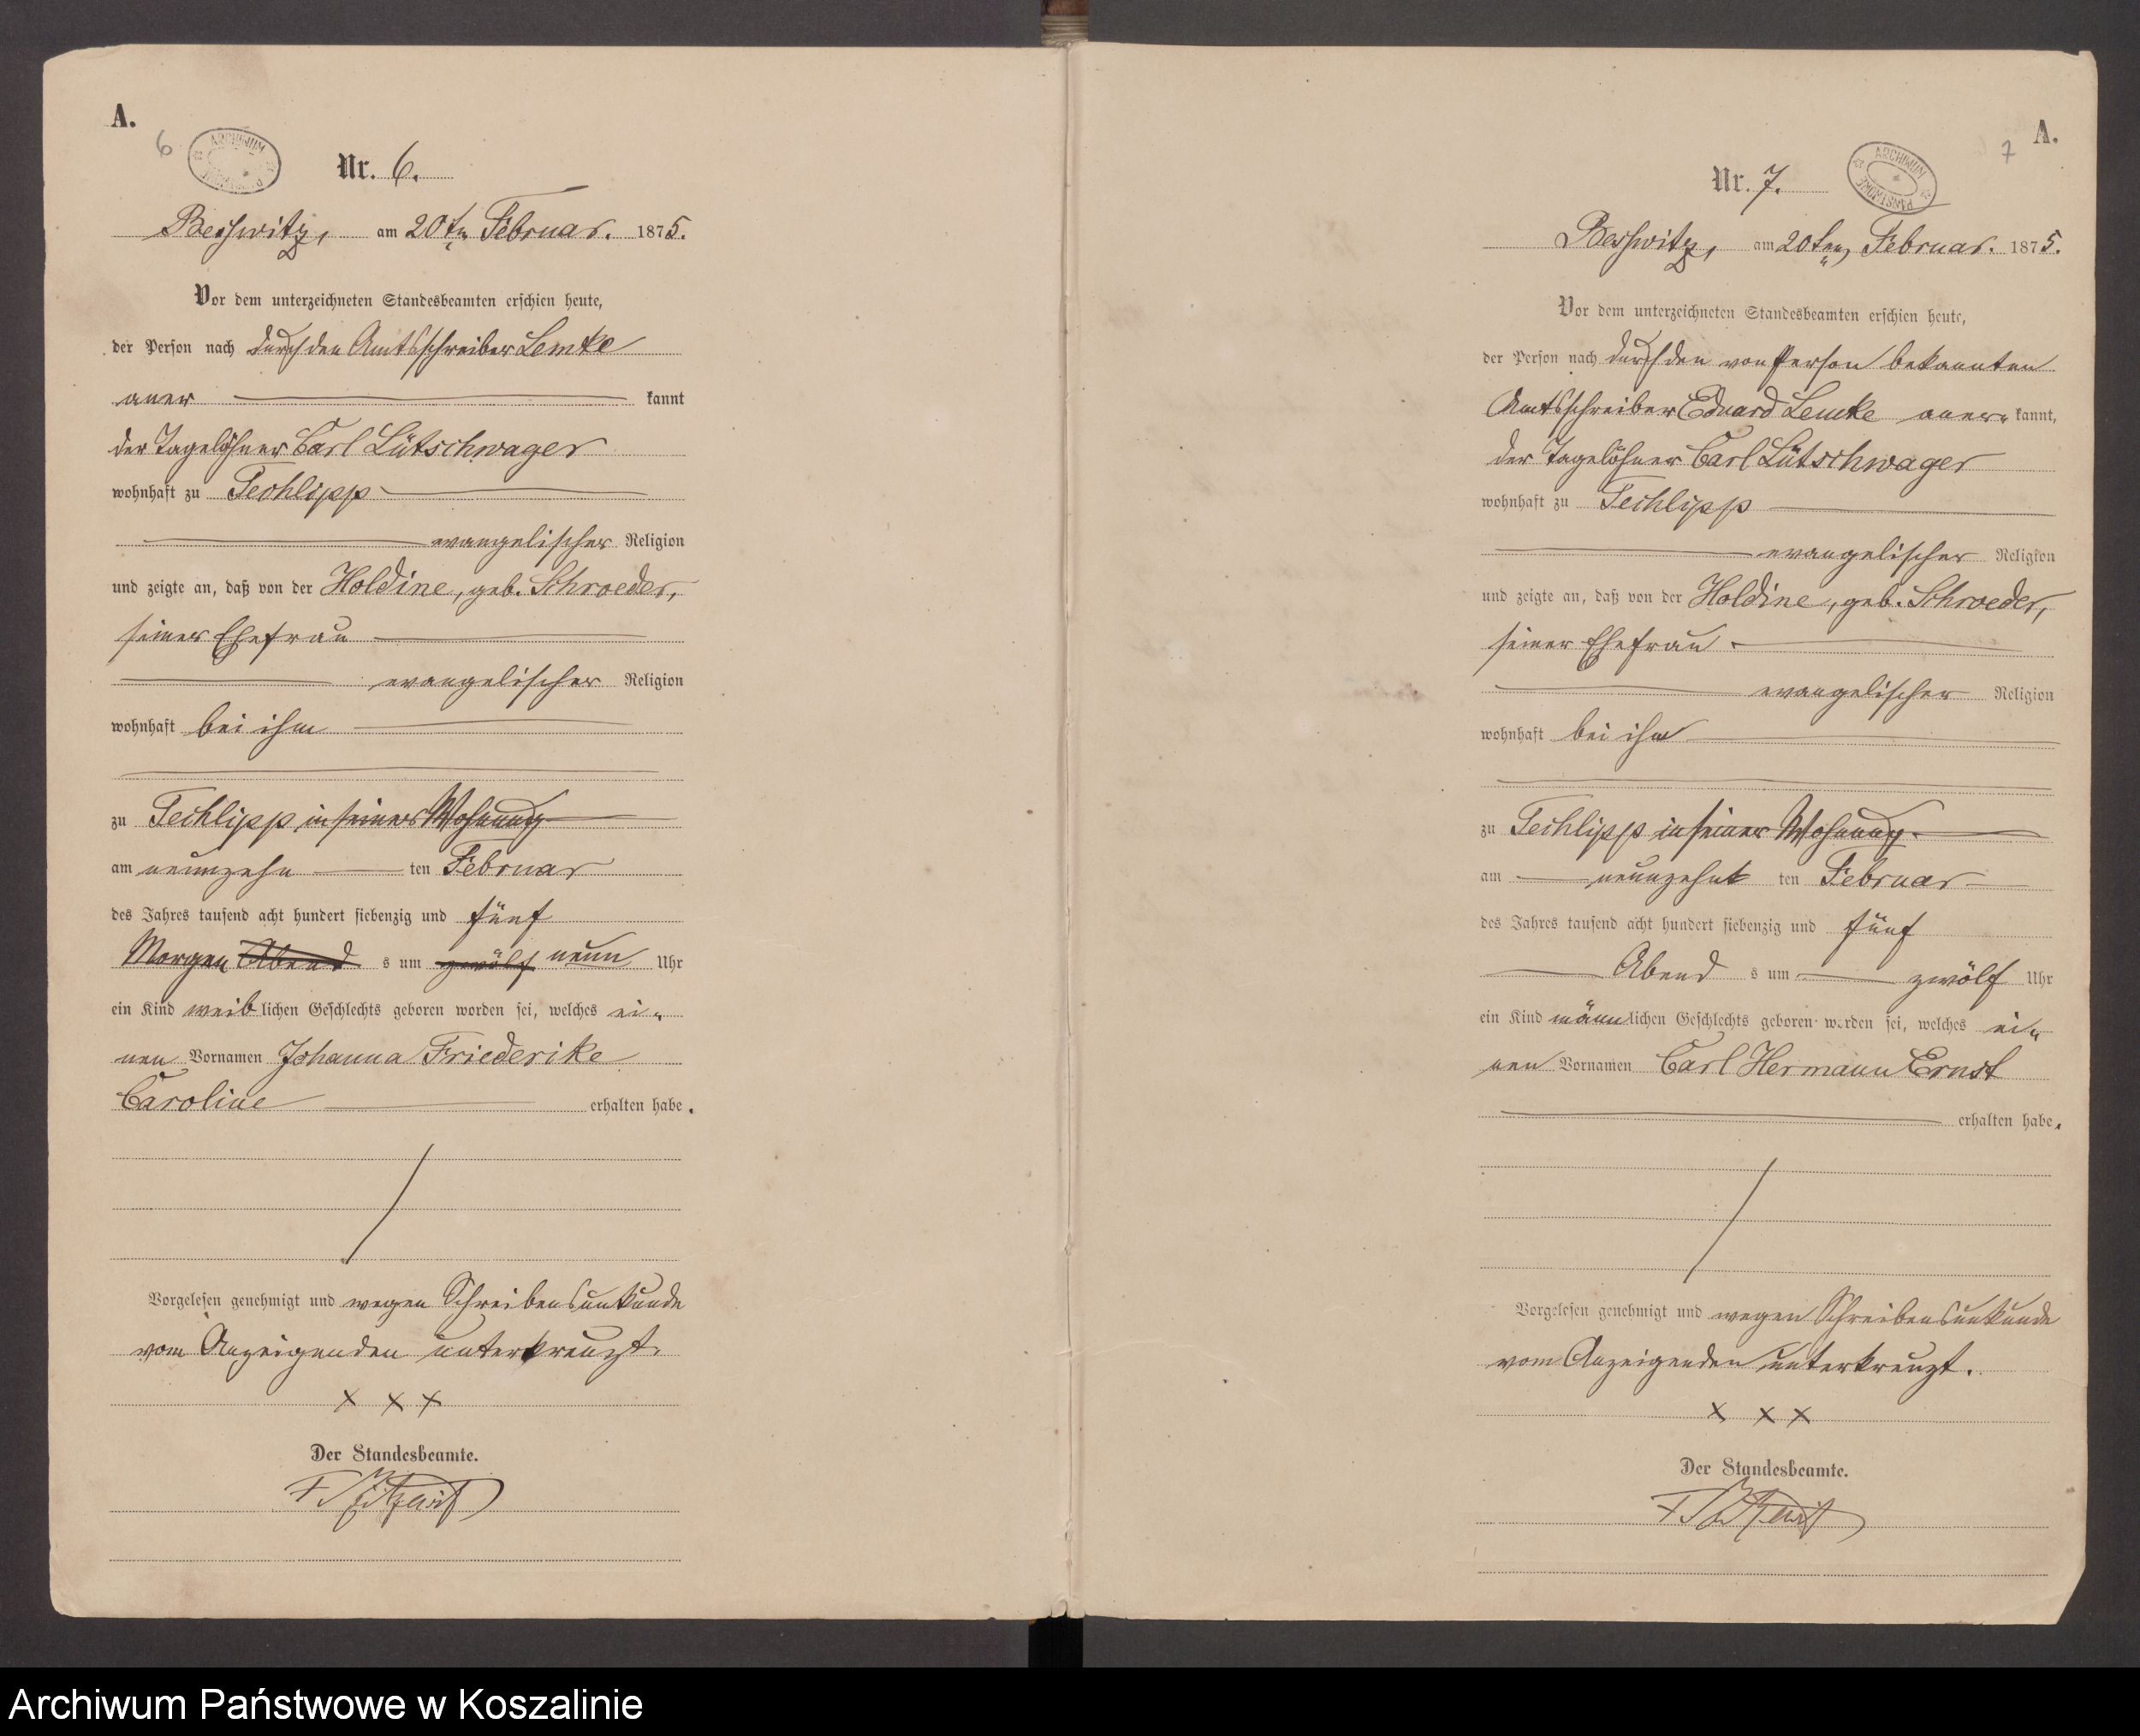 A.
6
ARCHIWUM PAŃSTWOWE
Nr. 6.
Beßwitz, am 20ten Februar. 1875.
Vor dem unterzeichneten Standesbeamten erschien heute,
der Person nach durch den Amtsschreiber Lemke
aner kannt
der Tagelöhner Carl Lütschwager
wohnhaft zu Techlipp
evangelischer Religion
und zeigte an, daß von der Holdine, geb. Schroeder,
seiner Ehefrau
evangelischer Religion
wohnhaft bei ihm
zu Techlipp in seiner Wohnung
am neunzehn ten Februar
des Jahres tausend acht hundert siebenzig und fünf
Morgen Abend s um zwölf neun Uhr
ein Kind weib lichen Geschlechts geboren worden sei, welches ei-
nen Vornamen Johanna Friederike
Caroline erhalten habe.
Vorgelesen genehmigt und wegen Schreibensunkunde
vom Anzeigenden unterkreuzt.
x x x
Der Standesbeamte.
A.
7
ARCHIWUM PAŃSTWOWE
Nr. 7.
Beßwitz, am 20ten Februar. 1875.
Vor dem unterzeichneten Standesbeamten erschien heute,
der Person nach durch den von Person bekannten
Amtsschreiber Eduard Lemke aner- kannt,
der Tagelöhner Carl Lütschwager
wohnhaft zu Techlipp
evangelischer Religion
und zeigte an, daß von der Holdine, geb. Schroeder,
seiner Ehefrau
evangelischer Religion
wohnhaft bei ihm
zu Techlipp in seiner Wohnung.
am neunzehnt ten Februar
des Jahres tausend acht hundert siebenzig und fünf
Abend s um zwölf Uhr
ein Kind männ lichen Geschlechts geboren worden sei, welches ei-
nen Vornamen Carl Hermann Ernst
erhalten habe.
Vorgelesen genehmigt und wegen Schreibensunkunde
vom Anzeigenden unterkreuzt.
x x x
Der Standesbeamte.
Archiwum Państwowe w Koszalinie